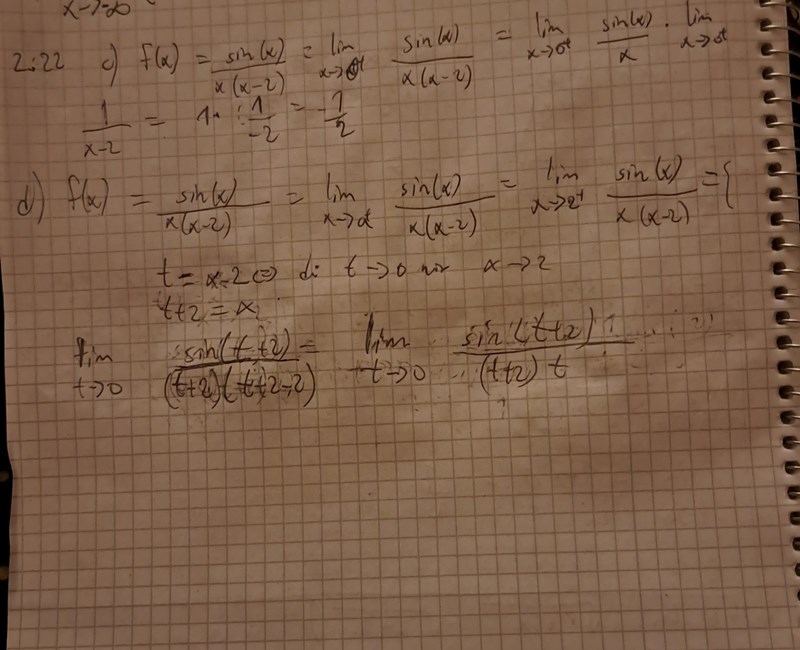 x→-∞
2.22 c) f(x) = sin(x)/(x(x-2)) = lim x→0+ sin(x)/(x(x-2)) = lim x→0+ sin(x)/x · lim x→0+
1/(x-2) = 1· 1/-2 = -1/2
d) f(x) = sin(x)/(x(x-2)) = lim sin(x)/(x(x-2)) = lim x→2+ sin(x)/(x(x-2)) = {
t = x-2 <=> då t→0 när x→2
t+2 = x
lim t→0 sin(t+2)/((t+2)(t+2-2)) = lim t→0 sin(t+2)/((t+2) t)